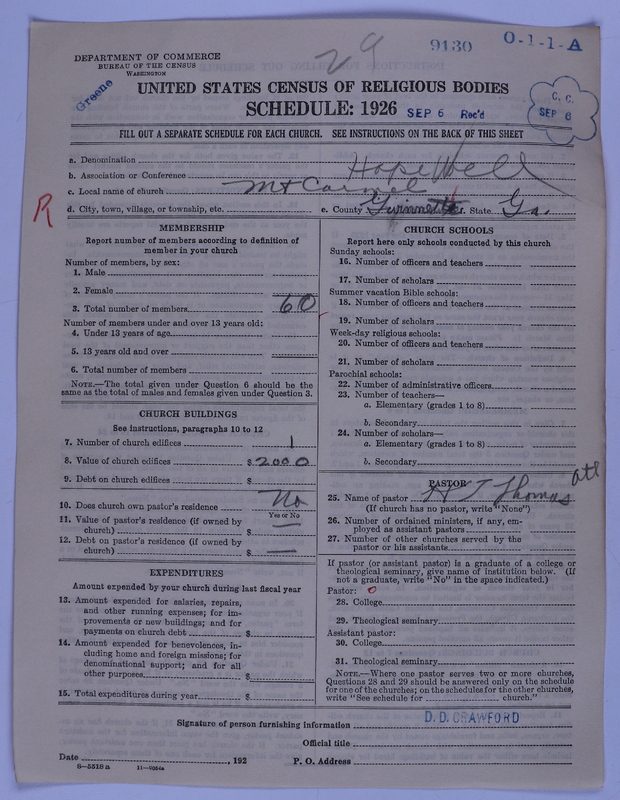 29
9130 O-1-1-A
DEPARTMENT OF COMMERCE
BUREAU OF THE CENSUS
WASHINGTON
Greene
UNITED STATES CENSUS OF RELIGIOUS BODIES
SCHEDULE: 1926 SEP 6 Rec'd
C. C.
SEP 6
FILL OUT A SEPARATE SCHEDULE FOR EACH CHURCH. SEE INSTRUCTIONS ON THE BACK OF THIS SHEET
a. Denomination
b. Association or Conference Hopewell
c. Local name of church Mt Carmel
R d. City, town, village, or township, etc. e. County Gwinnett f. State Ga.
MEMBERSHIP
Report number of members according to definition of
member in your church
Number of members, by sex:
1. Male
2. Female
3. Total number of members 60
Number of members under and over 13 years old:
4. Under 13 years of age
5. 13 years old and over
6. Total number of members
NOTE.—The total given under Question 6 should be the
same as the total of males and females given under Question 3.
CHURCH BUILDINGS
See instructions, paragraphs 10 to 12
7. Number of church edifices 1
8. Value of church edifices $2000
9. Debt on church edifices $
10. Does church own pastor's residence No
Yes or No
11. Value of pastor's residence (if owned by
church) $ —
12. Debt on pastor's residence (if owned by
church) $ —
EXPENDITURES
Amount expended by your church during last fiscal year
13. Amount expended for salaries, repairs,
and other running expenses; for im-
provements or new buildings; and for
payments on church debt $
14. Amount expended for benevolences, in-
cluding home and foreign missions; for
denominational support; and for all
other purposes $
15. Total expenditures during year $
CHURCH SCHOOLS
Report here only schools conducted by this church
Sunday schools:
16. Number of officers and teachers
17. Number of scholars
Summer vacation Bible schools:
18. Number of officers and teachers
19. Number of scholars
Week-day religious schools:
20. Number of officers and teachers
21. Number of scholars
Parochial schools:
22. Number of administrative officers
23. Number of teachers—
a. Elementary (grades 1 to 8)
b. Secondary
24. Number of scholars—
a. Elementary (grades 1 to 8)
b. Secondary
PASTOR
25. Name of pastor H T Thomas Atl
(If church has no pastor, write "None")
26. Number of ordained ministers, if any, em-
ployed as assistant pastors
27. Number of other churches served by the
pastor or his assistants
If pastor (or assistant pastor) is a graduate of a college or
theological seminary, give name of institution below. (If
not a graduate, write "No" in the space indicated.)
Pastor: 0
28. College
29. Theological seminary
Assistant pastor:
30. College
31. Theological seminary
NOTE.—Where one pastor serves two or more churches,
Questions 28 and 29 should be answered only on the schedule
for one of the churches; on the schedules for the other churches,
write "See schedule for church."
Signature of person furnishing information D. D. CRAWFORD
Official title
Date , 192 P. O. Address
8—5518 a 11—9054a